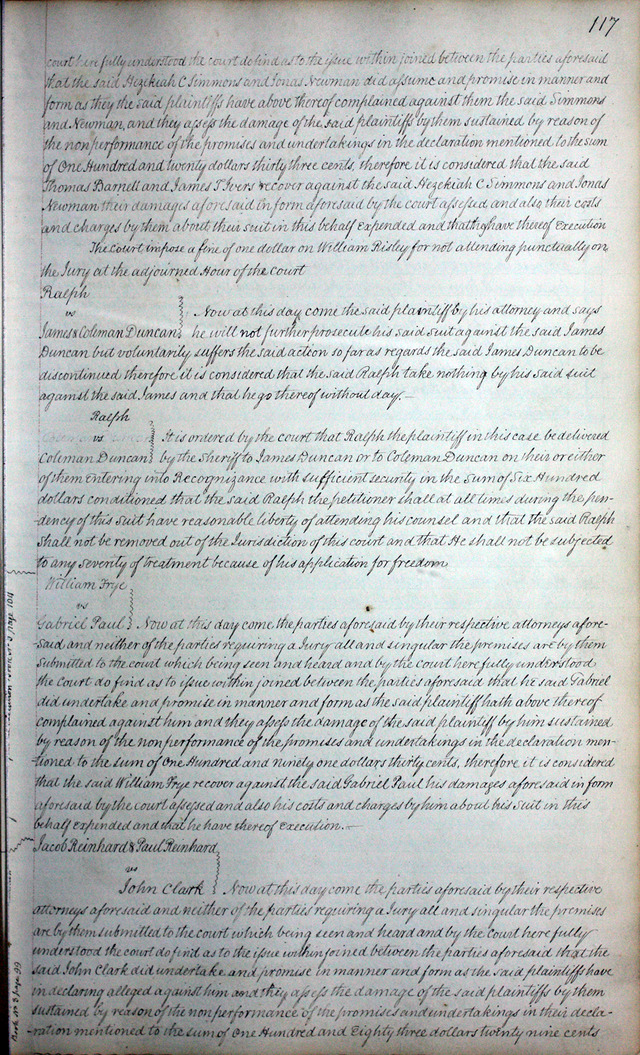 117
court here fully understood the court do find as to the issue within joined between the parties aforesaid
that the said Hezekiah C Simmons and Jonas Newman did assume and promise in manner and
form as they the said plaintiffs have above thereof complained against them the said Simmons
and Newman, and they assess the damage of the said plaintiffs by them sustained by reason of
the nonperformance of the promises and undertakings in the declaration mentioned to the sum
of One Hundred and twenty dollars thirty three cents, therefore it is considered that the said
Thomas Barnell and James T Ivers recover against the said Hezekiah C Simmons and Jonas
Newman their damages aforesaid in form aforesaid by the court assessed and also their costs
and charges by them about their suit in this behalf Expended and that they have thereof Execution
The Court impose a fine of one dollar on William Risley for not attending punctually on
the Jury at the adjourned Hour of the Court
Ralph
vs
James & Coleman Duncan
Now at this day come the said plaintiff by his attorney and says
he will not further prosecute his said suit against the said James
Duncan but voluntarily suffers the said action so far as regards the said James Duncan to be
discontinued therefore it is considered that the said Ralph take nothing by his said suit
against the said James and that he go thereof without day.—
Ralph
vs
Coleman Duncan
It is ordered by the court that Ralph the plaintiff in this case be delivered
by the Sheriff to James Duncan or to Coleman Duncan on their or either
of them entering into Recognizance with sufficient security in the Sum of Six Hundred
dollars conditioned that the said Ralph the petitioner shall at all times during the pen-
-dency of this Suit have reasonable liberty of attending his counsel and that the said Ralph
Shall not be removed out of the Jurisdiction of this court and that He shall not be subjected
to any Severity of treatment because of his application for freedom
William Frye
vs
Gabriel Paul
Now at this day come the parties aforesaid by their respective attorneys afore-
-said and neither of the parties requiring a Jury all and singular the premises are by them
submitted to the court which being seen and heard and by the court here fully understood
the Court do find as to issue within joined between the parties aforesaid that he said Gabriel
did undertake and promise in manner and form as the said plaintiff hath above thereof
complained against him and they assess the damage of the said plaintiff by him sustained
by reason of the nonperformance of the promises and undertakings in the declaration men-
-tioned to the sum of One Hundred and ninety one dollars thirty cents, therefore it is considered
that the said William Frye recover against the Said Gabriel Paul his damages aforesaid in form
aforesaid by the court assessed and also his costs and charges by him about his Suit in this
behalf Expended and that he have thereof Execution.—
Jacob Reinhard & Paul Reinhard
vs
John Clark
Now at this day come the parties aforesaid by their respective
attorneys aforesaid and neither of the parties requiring a Jury all and singular the premises
are by them submitted to the court which being seen and heard and by the Court here fully
understood the court do find as to the issue within joined between the parties aforesaid that the
said John Clark did undertake and promise in manner and form as the said plaintiffs have
in declaring alleged against him and they assess the damage of the said plaintiffs by them
sustained by reason of the nonperformance of the promises and undertakings in their decla-
-ration mentioned to the sum of One Hundred and Eighty three dollars twenty nine cents
page 104
Book No 3 page 99